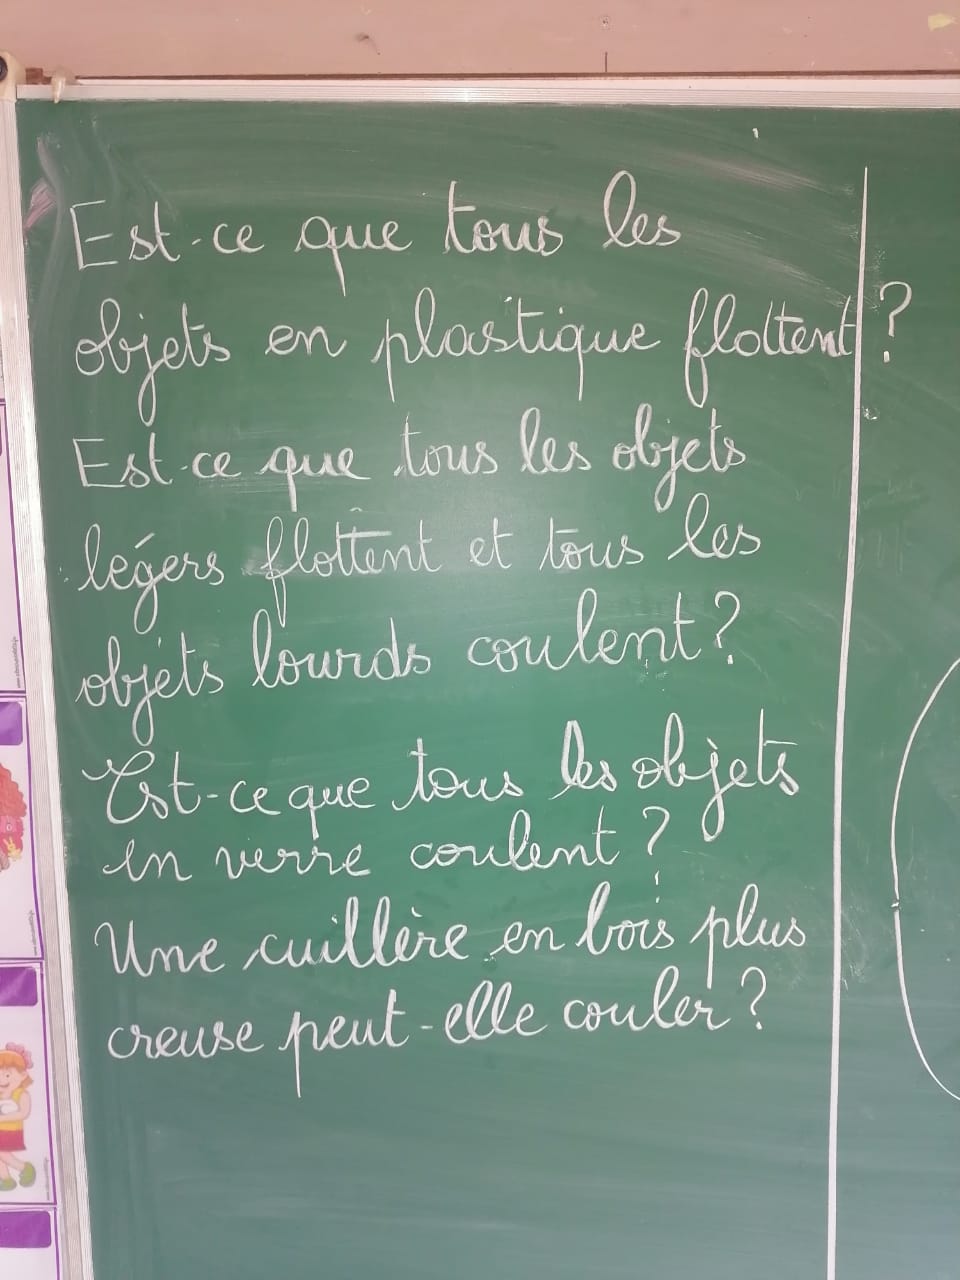 Est-ce que tous les
objets en plastique flottent ?
Est-ce que tous les objets
légers flottent et tous les
objets lourds coulent ?
Est-ce que tous les objets
en verre coulent ?
Une cuillère en bois plus
creuse peut-elle couler ?